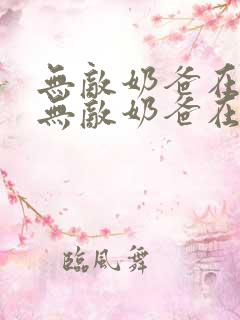 無敵奶爸在
無敵奶爸在
臨風舞